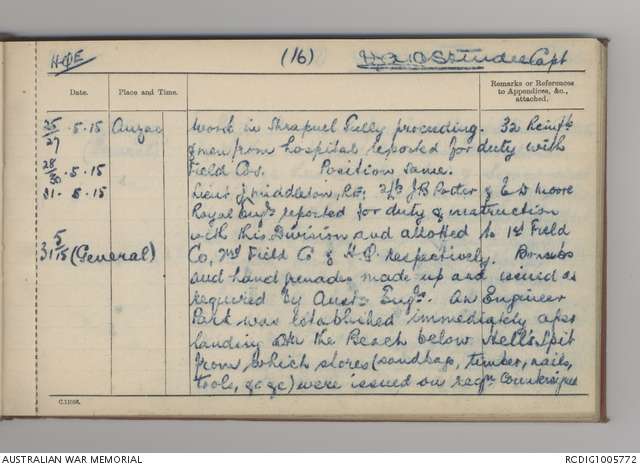 HQE (16) Capt
Remarks or References
to Appendices, &c.,
attached.
Date. Place and Time.
25/27 . 5 . 15 Anzac Work in Shrapnel Gully proceeding. 32 Reinfts
& men from hospital reported for duty with
28/30 . 5 . 15 Field Cos. Position same.
31 . 5 . 15 Lieut J Middleton, R.E. J B Porter & E D Moore
Royal Engrs reported for duty & instruction
with this Division and allotted to 1st Field
31 5/15 (General) Co, 2nd Field Co & H.Q. respectively. Bombs
and hand grenades made up and issued as
required by Austn Engrs. An Engineer
Park was established immediately after
landing on the Beach below Hell's Spit
from which stores (sandbags, timber, nails,
tools, &c &c) were issued on reqn countersigned
AUSTRALIAN WAR MEMORIAL RCDIG1005772